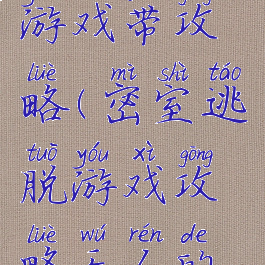 游戏带攻
lüè mì shì táo
略(密室逃
tuō yóu xì gōng
脱游戏攻
lüè wú rén de